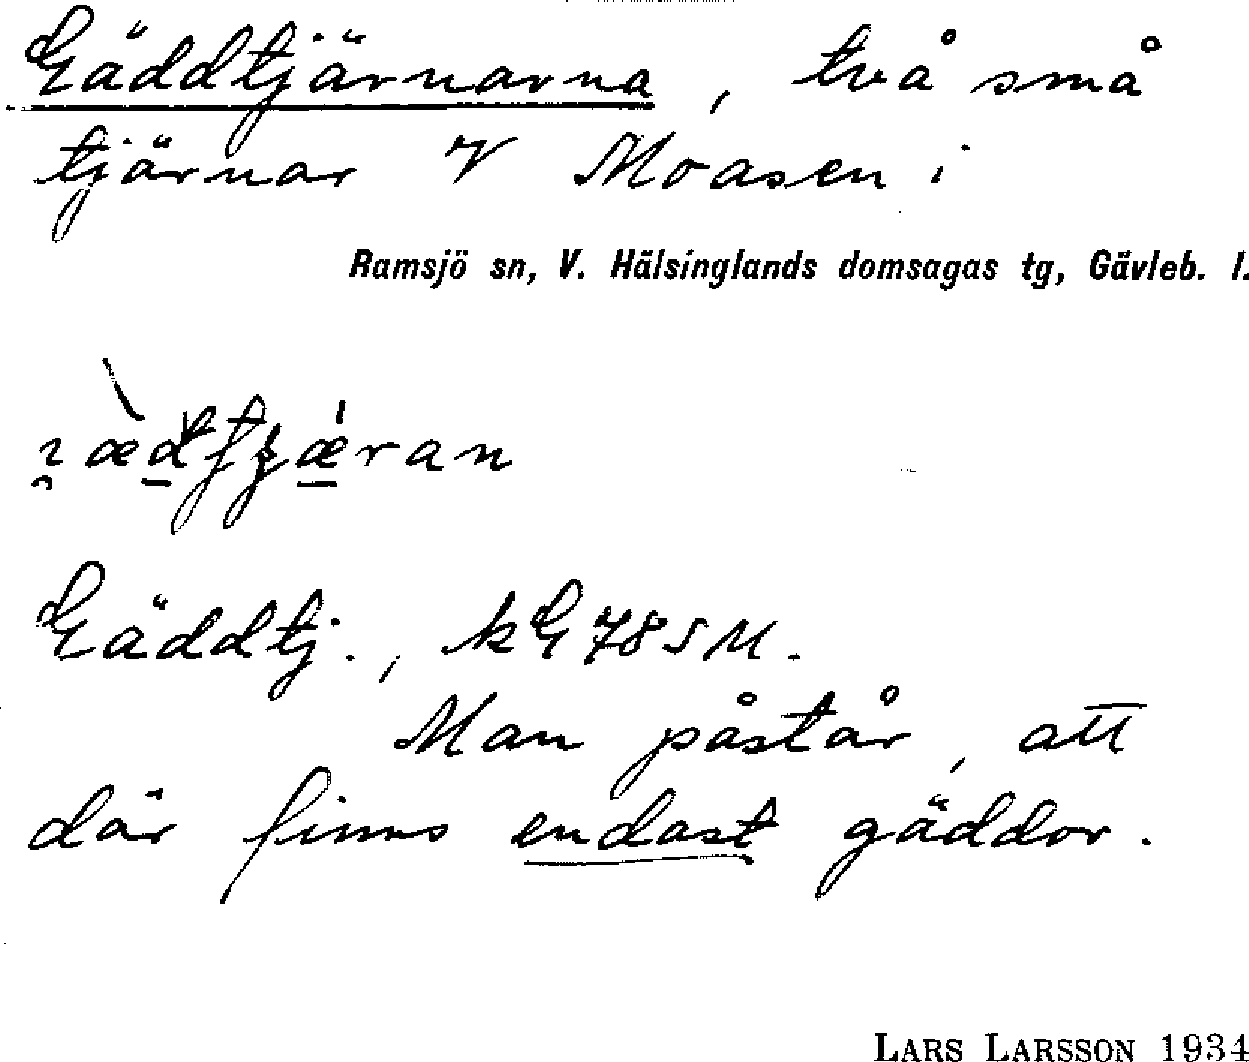 Gäddtjärnarna, två små
tjärnar V Moasen i
Ramsjö sn, V. Hälsinglands domsagas tg, Gävleb. l.
Gäddtj., kG 78 SM.
Man påstår, att
där finns endast gäddor.
LARS LARSSON 1934